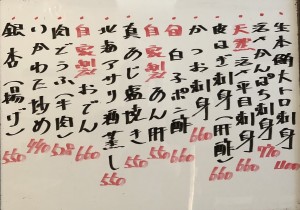 生本鮪大トロ刺身 1100
天然かんぱち刺身 770
天然ヒラメ平目刺身 660
皮はぎ刺身(肝酢)
かつお刺身 660
白子ポン酢 660
自家製 あん肝 550
真あじ塩焼き 550
北海アサリ酒蒸し 550
自家製おでん 660
肉どうふ(牛肉) 528
りかわた炒め 440
銀杏(揚げ) 550